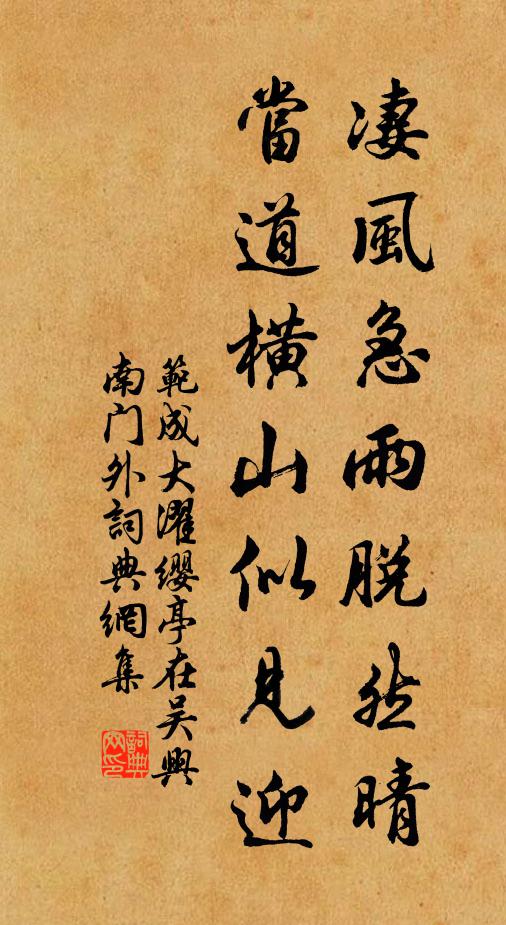 凄風急雨脫然晴
當道橫山似見迎
範成大濯纓亭在吴興
南门外詞典網集
詞典网印